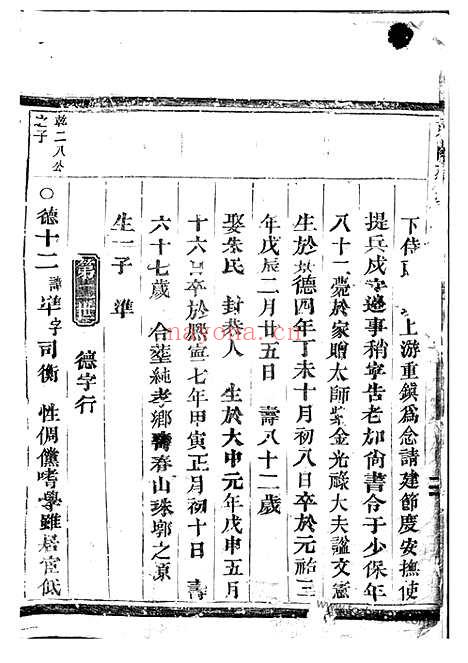 上游重鎮爲念請建節度安撫使
提兵戍守邊事稍寧告老加尚書令于少保年
八十二薨於家贈太師紫金光祿大夫諡文憲
生於景德四年丁未十月初八日卒於元祐三
年戊辰二月廿五日 壽八十二歲
娶朱氏 封恭人 生於大中元年戊申五月
十六日卒於熙寧七年甲寅正月初十日 壽
六十七歲 合塟純孝鄉 春山珠郭之原
生一子 準
德字行
乾二八公
之子
○德十二 諱準字司衡 性倜儻嗜學雖居官低
nayona.cn